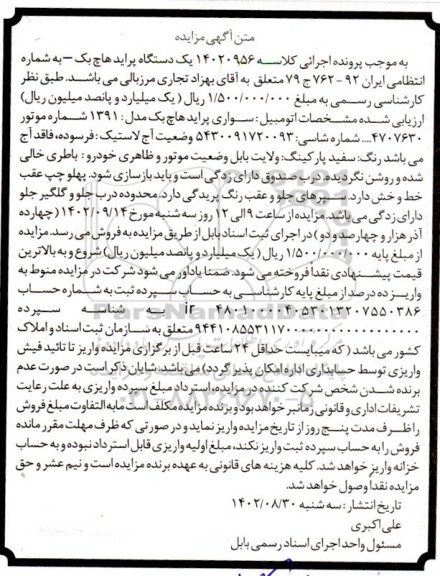 متن آگهی مزایده
به موجب پرونده اجرائی کلاسه ۱۴۰۲۰۹۵۶ یک دستگاه پراید هاچ بک – به شماره
انتظامی ایران ۹۲ - ۷۶۲ ج ۷۹ متعلق به آقای بهزاد تجاری مرزبالی می باشد. طبق نظر
کارشناسی رسمی به مبلغ ۱/۵۰۰/۰۰۰/۰۰۰ ریال (یک میلیارد و پانصد میلیون ریال)
ارزیابی شده مشخصات اتومبیل: سواری پراید هاچ بک مدل: ۱۳۹۱ شماره موتور
۴۷۰۷۶۳۰ــ شماره شاسی: ۵۴۳۰۰۹۱۷۲۰۰۹۳ وضعیت آج لاستیک: فرسوده، فاقد آج
می باشد رنگ: سفید پارکینگ: ولایت بابل وضعیت موتور و ظاهری خودرو: باطری خالی
شده و روشن نگردیده. درب صندوق دارای زدگی است و باید بازسازی شود. پهلو چپ عقب
خط و خش دارد. سپرهای جلو و عقب رنگ پریدگی دارد. محدوده درب جلو و گلگیر جلو
دارای زدگی می باشد. مزایده از ساعت ۹ الی ۱۲ روز سه شنبه مورخ ۱۴۰۲/۰۹/۱۴ (چهارده
آذر هزار و چهارصد و دو) در اجرای ثبت اسناد بابل از طریق مزایده به فروش می رسد. مزایده
از مبلغ پایه ۱/۵۰۰/۰۰۰/۰۰۰ ریال (یک میلیارد و پانصد میلیون ریال) شروع و به بالاترین
قیمت پیشنهادی نقدا فروخته می شود. ضمنا یادآور می شود شرکت در مزایده منوط به
واریز ده درصد از مبلغ پایه کارشناسی به حساب سپرده ثبت به شماره حساب
ir به شناسه سپرده
متعلق به سازمان ثبت اسناد و املاک
کشور می باشد (که میبایست حداقل ۲۴ ساعت قبل از برگزاری مزایده واریز تا تائید فیش
واریزی توسط حسابداری اداره امکان پذیر گردد) می باشد. شایان ذکر است در صورت عدم
برنده شدن شخص شرکت کننده در مزایده، استرداد مبلغ سپرده واریزی به علت رعایت
تشریفات اداری و قانونی زمانبر خواهد بود و برنده مزایده مکلف است مابه التفاوت مبلغ فروش
را ظرف مدت پنج روز از تاریخ مزایده واریز نماید و در صورتی که ظرف مهلت مقرر مانده
فروش را به حساب سپرده ثبت واریز نکند، مبلغ اولیه واریزی قابل استرداد نبوده و به حساب
خزانه واریز خواهد شد. کلیه هزینه های قانونی به عهده برنده مزایده است و نیم عشر و حق
مزایده نقدا وصول خواهد شد.
تاریخ انتشار: سه شنبه ۱۴۰۲/۰۸/۳۰
علی اکبری
مسئول واحد اجرای اسناد رسمی بابل